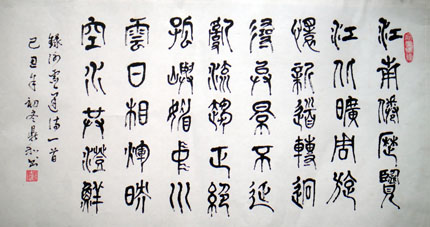 江南倦歷覽
江北曠周旋
懷新道轉迥
尋異景不延
亂流趨正絕
孤嶼媚中川
雲日相輝映
空水共澄鮮
錄謝靈運詩一首
己丑年初冬書